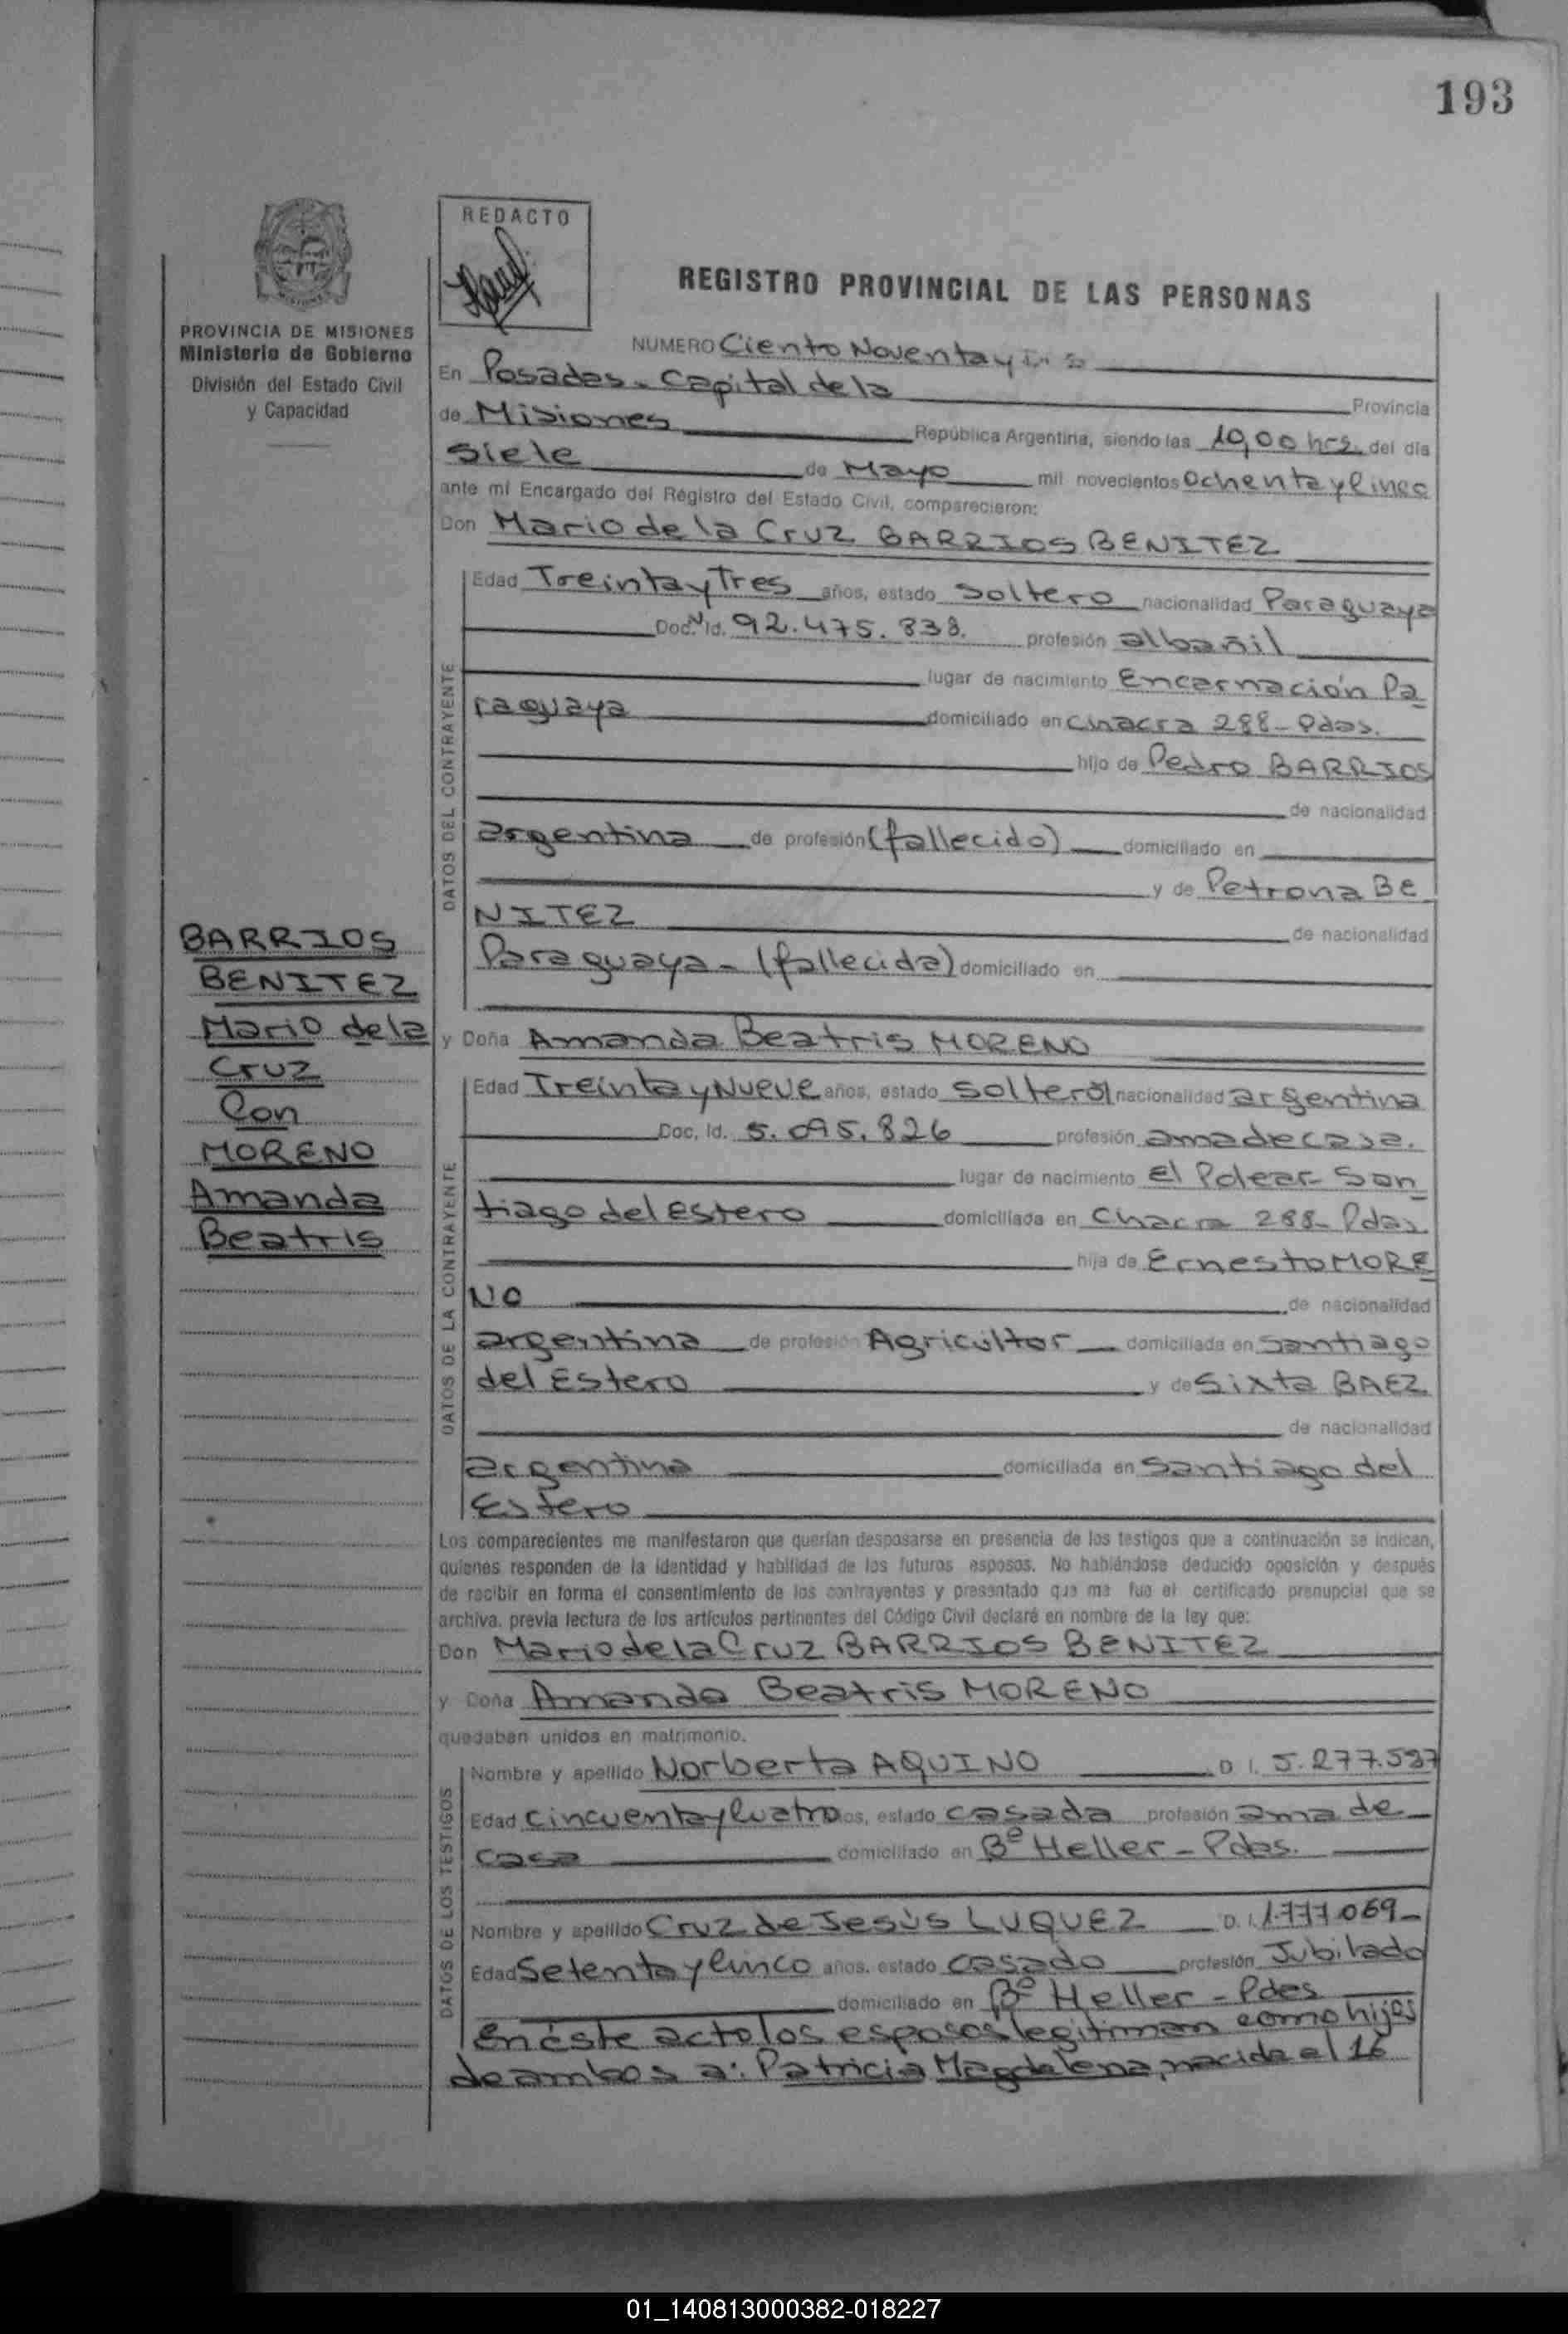 193
REDACTO
REGISTRO PROVINCIAL DE LAS PERSONAS
PROVINCIA DE MISIONES
Ministerio de Gobierno
División del Estado Civil
y Capacidad
NUMERO Ciento Noventa y
En Posadas - Capital de la Provincia
de Misiones República Argentina, siendo las 10,00 hrs. del día
Siete de Mayo mil novecientos Ochenta y Cinco
ante mí Encargado del Registro del Estado Civil, comparecieron:
Don Mario de la Cruz BARRIOS BENITEZ
DATOS DEL CONTRAYENTE
Edad Treinta y Tres años, estado Soltero nacionalidad Paraguaya
Doc. Id. 92.475.838. profesión albañil
lugar de nacimiento Encarnación Pa
raguaya domiciliado en chacra 288 - Pdas.
hijo de Pedro BARRIOS
de nacionalidad
argentina de profesión (fallecido) domiciliado en
y de Petrona BE
NITEZ de nacionalidad
Paraguaya - (fallecida) domiciliado en
BARRIOS
BENITEZ
Mario de la
Cruz
Con
MORENO
Amanda
Beatris
y Doña Amanda Beatris MORENO
DATOS DE LA CONTRAYENTE
Edad Treinta y Nueve años, estado Soltera nacionalidad argentina
Doc. Id. 5.095.826 profesión ama de casa.
lugar de nacimiento El San
tiago del Estero domiciliada en Chacra 288 - Pdas
hija de Ernesto MORE
NO de nacionalidad
argentina de profesión Agricultor domiciliada en Santiago
del Estero y de Sixta BAEZ
de nacionalidad
argentina domiciliada en Santiago del
Estero
Los comparecientes me manifestaron que querían desposarse en presencia de los testigos que a continuación se indican,
quienes responden de la identidad y habilidad de los futuros esposos. No habiéndose deducido oposición y después
de recibir en forma el consentimiento de los contrayentes y presentado que me fue el certificado prenupcial que se
archiva. previa lectura de los artículos pertinentes del Código Civil declaré en nombre de la ley que:
Don Mario de la Cruz BARRIOS BENITEZ
y Doña Amanda Beatris MORENO
quedaban unidos en matrimonio.
DATOS DE LOS TESTIGOS
Nombre y apellido Norberta AQUINO D I. 5.277.537
Edad Cincuenta y Cuatro años, estado casada profesión ama de
casa domiciliado en Bº Heller - Pdas.
Nombre y apellido Cruz de Jesús LUQUEZ D. I. 1.777.069 -
Edad Setenta y Cinco años. estado casado profesión Jubilado
domiciliado en Bº Heller - Pdas
En éste acto los esposos legitiman como hijos
de ambos a: Patricia Magdalena, nacida el 16
01_140813000382-018227